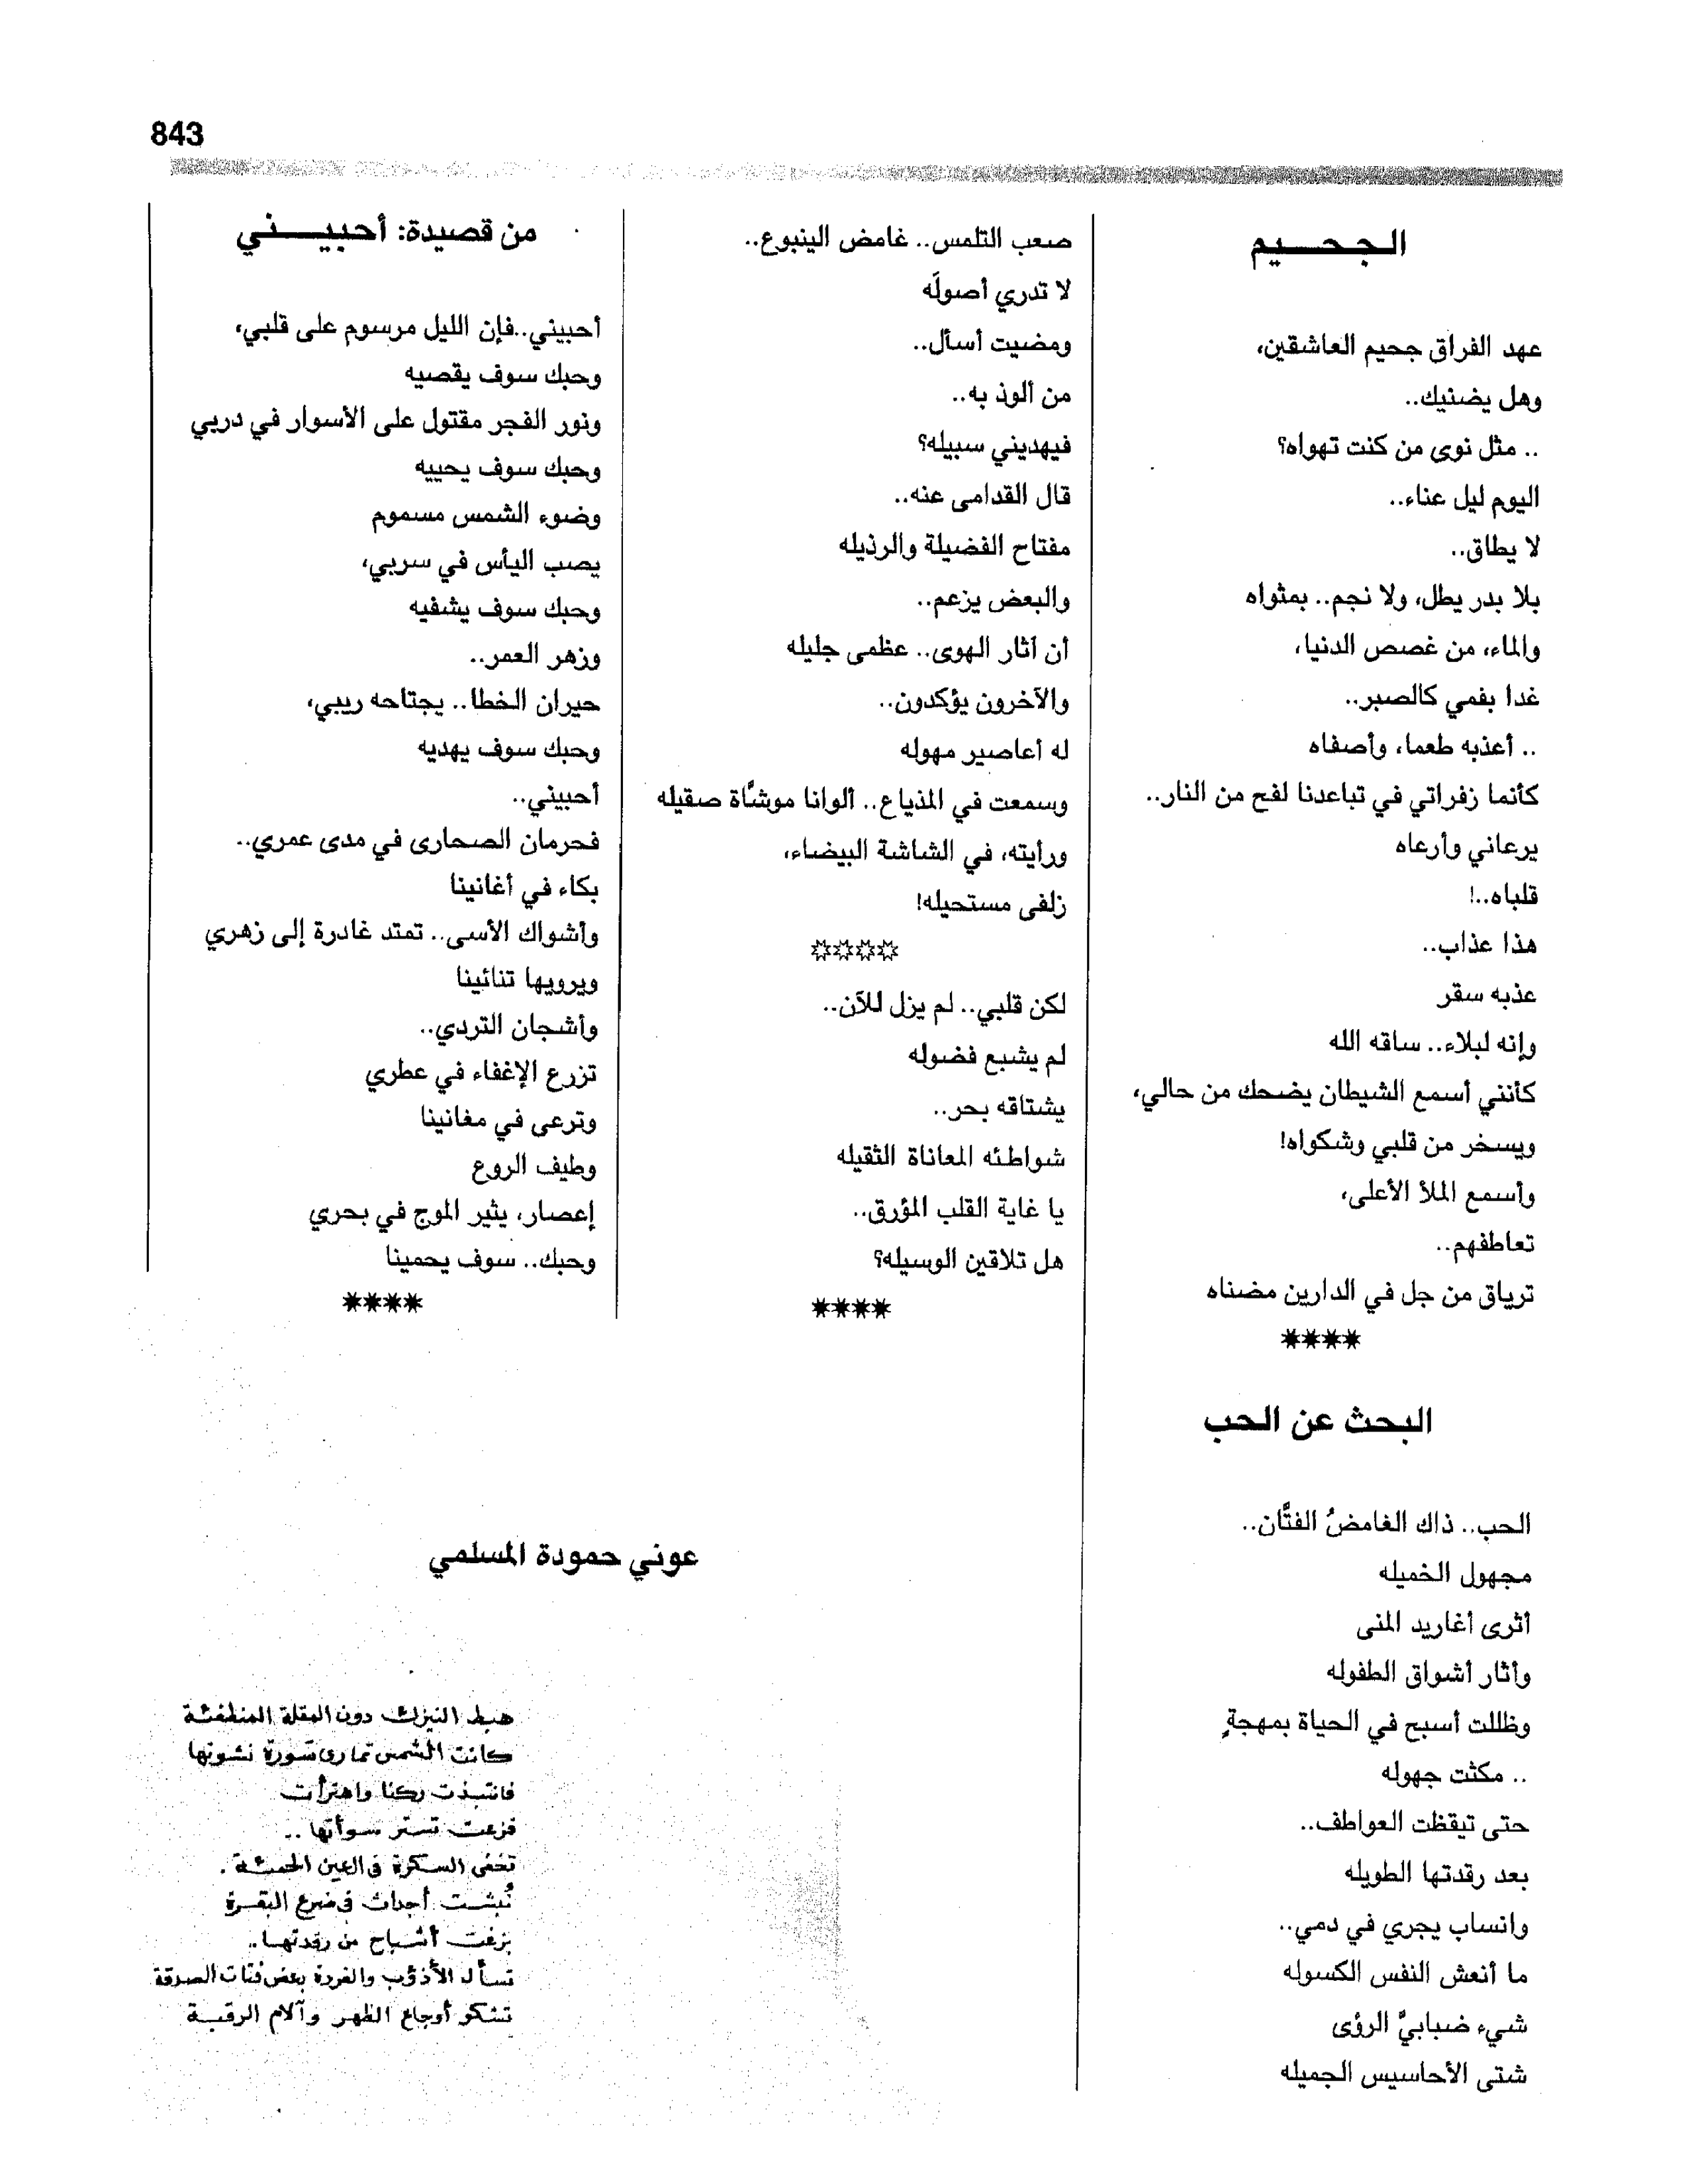 843
الجحيم
عهد الفراق جحيم العاشقين،
وهل يضنيك..
.. مثل نوى من كنت تهواه؟
اليوم ليل عناء..
لا يطاق..
بلا بدر يطل، ولا نجم.. بمثواه
والماء، من غصص الدنيا،
غدا بفمي كالصبر..
.. أعذبه طعما، وأصفاه
كأنما زفراتي في تباعدنا لفح من النار..
يرعاني وأرعاه
قلباه..!
هذا عذاب..
عذبه سقر
وإنه لبلاء.. ساقه الله
كأنني أسمع الشيطان يضحك من حالي،
ويسخر من قلبي وشكواه!
وأسمع الملأ الأعلى،
تعاطفهم..
ترياق من جل في الدارين مضناه
****
البحث عن الحب
الحب.. ذاك الغامضُ الفتَّان..
مجهول الخميله
أثرى أغاريد المنى
وأثار أشواق الطفوله
وظللت أسبح في الحياة بمهجةٍ
.. مكثت جهوله
حتى تيقظت العواطف..
بعد رقدتها الطويله
وانساب يجري في دمي..
ما أنعش النفس الكسوله
شيء ضبابيَّ الرؤى
شتى الأحاسيس الجميله
صعب التلمس.. غامض الينبوع..
لا تدري أصولَه
ومضيت أسأل..
من ألوذ به..
فيهديني سبيله؟
قال القدامى عنه..
مفتاح الفضيلة والرذيله
والبعض يزعم..
أن آثار الهوى.. عظمى جليله
والآخرون يؤكدون..
له أعاصير مهوله
وسمعت في المذياع.. ألوانا موشَّاة صقيله
ورأيته، في الشاشة البيضاء،
زلفى مستحيله!
****
لكن قلبي.. لم يزل للآن..
لم يشبع فضوله
يشتاقه بحر..
شواطئه المعاناة الثقيله
يا غاية القلب المؤرق..
هل تلاقين الوسيله؟
****
من قصيدة: أحبيني
أحبيني..فإن الليل مرسوم على قلبي،
وحبك سوف يقصيه
ونور الفجر مقتول على الأسوار في دربي
وحبك سوف يحييه
وضوء الشمس مسموم
يصب اليأس في سربي،
وحبك سوف يشفيه
وزهر العمر..
حيران الخطا.. يجتاحه ريبي،
وحبك سوف يهديه
أحبيني..
فحرمان الصحارى في مدى عمري..
بكاء في أغانينا
وأشواك الأسى.. تمتد غادرة إلى زهري
ويرويها تنائينا
وأشجان التردي..
تزرع الإغفاء في عطري
وترعى في مغانينا
وطيف الروع
إعصار، يثير الموج في بحري
وحبك.. سوف يحمينا
****
عوني حمودة المسلمي
هبط النيزك دون المقلة المنطفئة
كانت الشمس تمارى سورة نشوتها
فانتبذت ركنا واهترأت
فزعت تستر سوأتها ..
تخفى السكرة فى العين الحمئة .
نُبشت أجداث فى ضرع البقرة
بزغت أشباح من رقدتها ..
تسأل الأذؤب والقردة بعض فتات الصدقة
تشكو أوجاع الظهر وآلام الرقبة